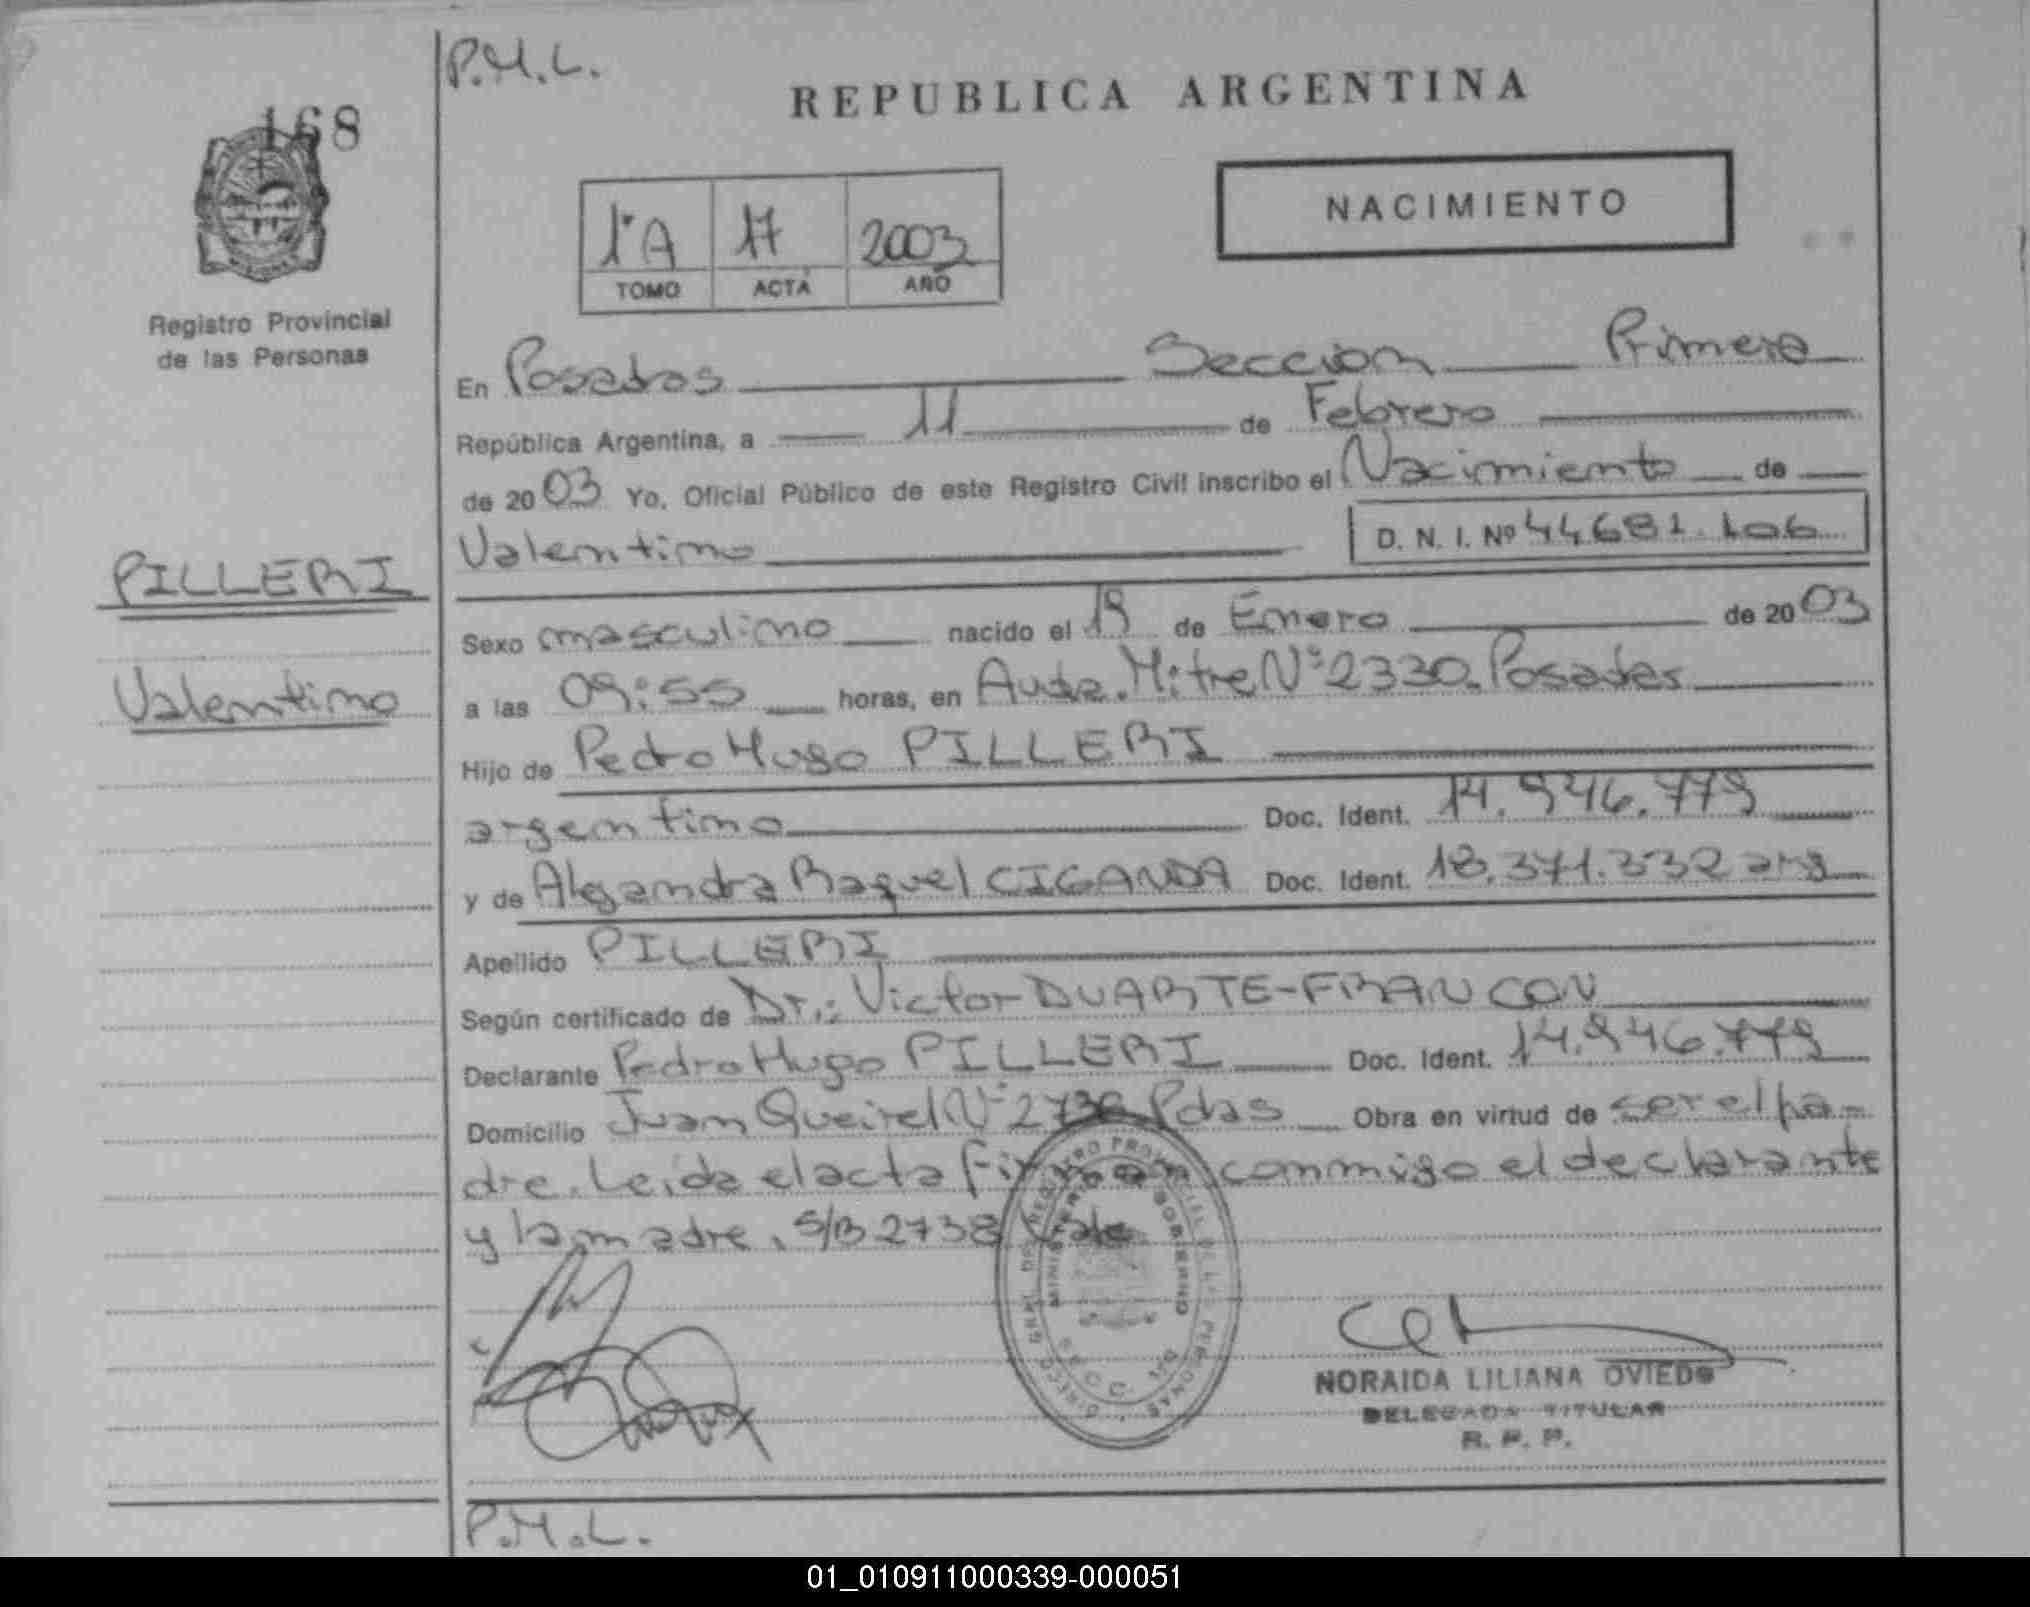 P.M.L.
168
REPUBLICA ARGENTINA
NACIMIENTO
1ºA 17 2003
TOMO ACTA AÑO
Registro Provincial
de las Personas
En Posadas Seccion Primera
República Argentina, a 11 de Febrero
de 2003 Yo, Oficial Público de este Registro Civil inscribo el Nacimiento de
Valentino D. N. I. Nº 44681.106
PILLERI
Valentino
Sexo masculino nacido el 19 de Enero de 2003
a las 09:55 horas, en Avda. Mitre Nº 2330. Posadas
Hijo de Pedro Hugo PILLERI
argentino Doc. Ident. 14.946.779
y de Alejandra Raquel CIGANDA Doc. Ident. 18.371.332 arg
Apellido PILLERI
Según certificado de Dr.: Victor DUARTE-FRANCON
Declarante Pedro Hugo PILLERI Doc. Ident. 14.946.779
Domicilio Juan Queirel Nº 2738 Pdas Obra en virtud de ser el pa-
dre. Leida el acta firman conmigo el declarante
y la madre. S/B 2738 Vale
DIRECC. GRAL. DEL REGISTRO PROVINCIAL DE LAS PERSONAS
MINISTERIO DE GOBIERNO
SECC. 1
NORAIDA LILIANA OVIEDO
DELEGADA TITULAR
R. P. P.
P.M.L.
01_010911000339-000051